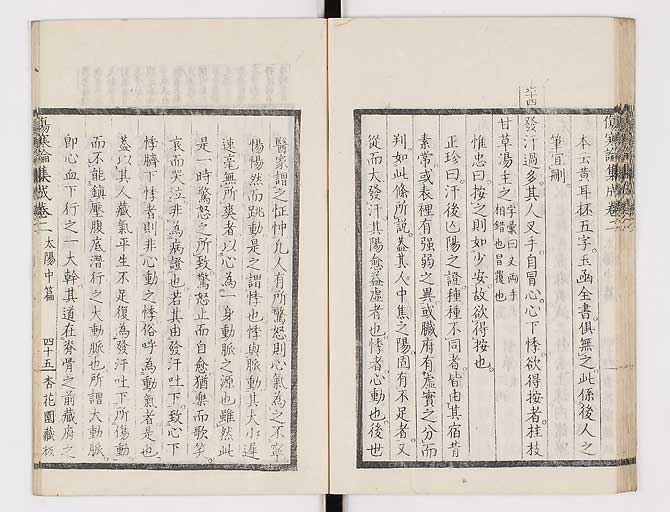 本云黄耳抔五字玉函全書俱無之此係後人之
筆宜刪
六十四
發汗過多其人叉手自冒心心下悸欲得按者桂枝
甘草湯主之字彙曰叉兩手相錯也冒覆也
惟忠曰按之則如少安故欲得按也
正珍曰汗後亡陽之證種種不同者皆由其宿昔
素常或表裡有强弱之異或臓府有虛實之分而
判如此條所說蓋其人中焦之陽固有不足者又
從而大發汗其陽愈益虛者也悸者心動也後世
傷寒論集成卷二
醫家謂之怔忡凡人有所驚怒則心氣為之不寧
惕惕然而跳動是之謂悸也悸與脈動其大小遲
速毫無所爽者以心為一身動脈之源也雖然此
是一時驚怒之所致驚怒止而自愈猶樂而歌笑
哀而哭泣非為病證也若其由發汗吐下致心下
悸臍下悸者則非心動之悸俗呼為動氣者是也
蓋以其人藏氣平生不足復為發汗吐下所傷動
而不能鎮壓腹底潛行之大動脈也所謂大動脈
即心血下行之一大幹其道在脊骨之前藏府之
傷寒論集成卷二 太陽中篇 四十五 杏花園藏板